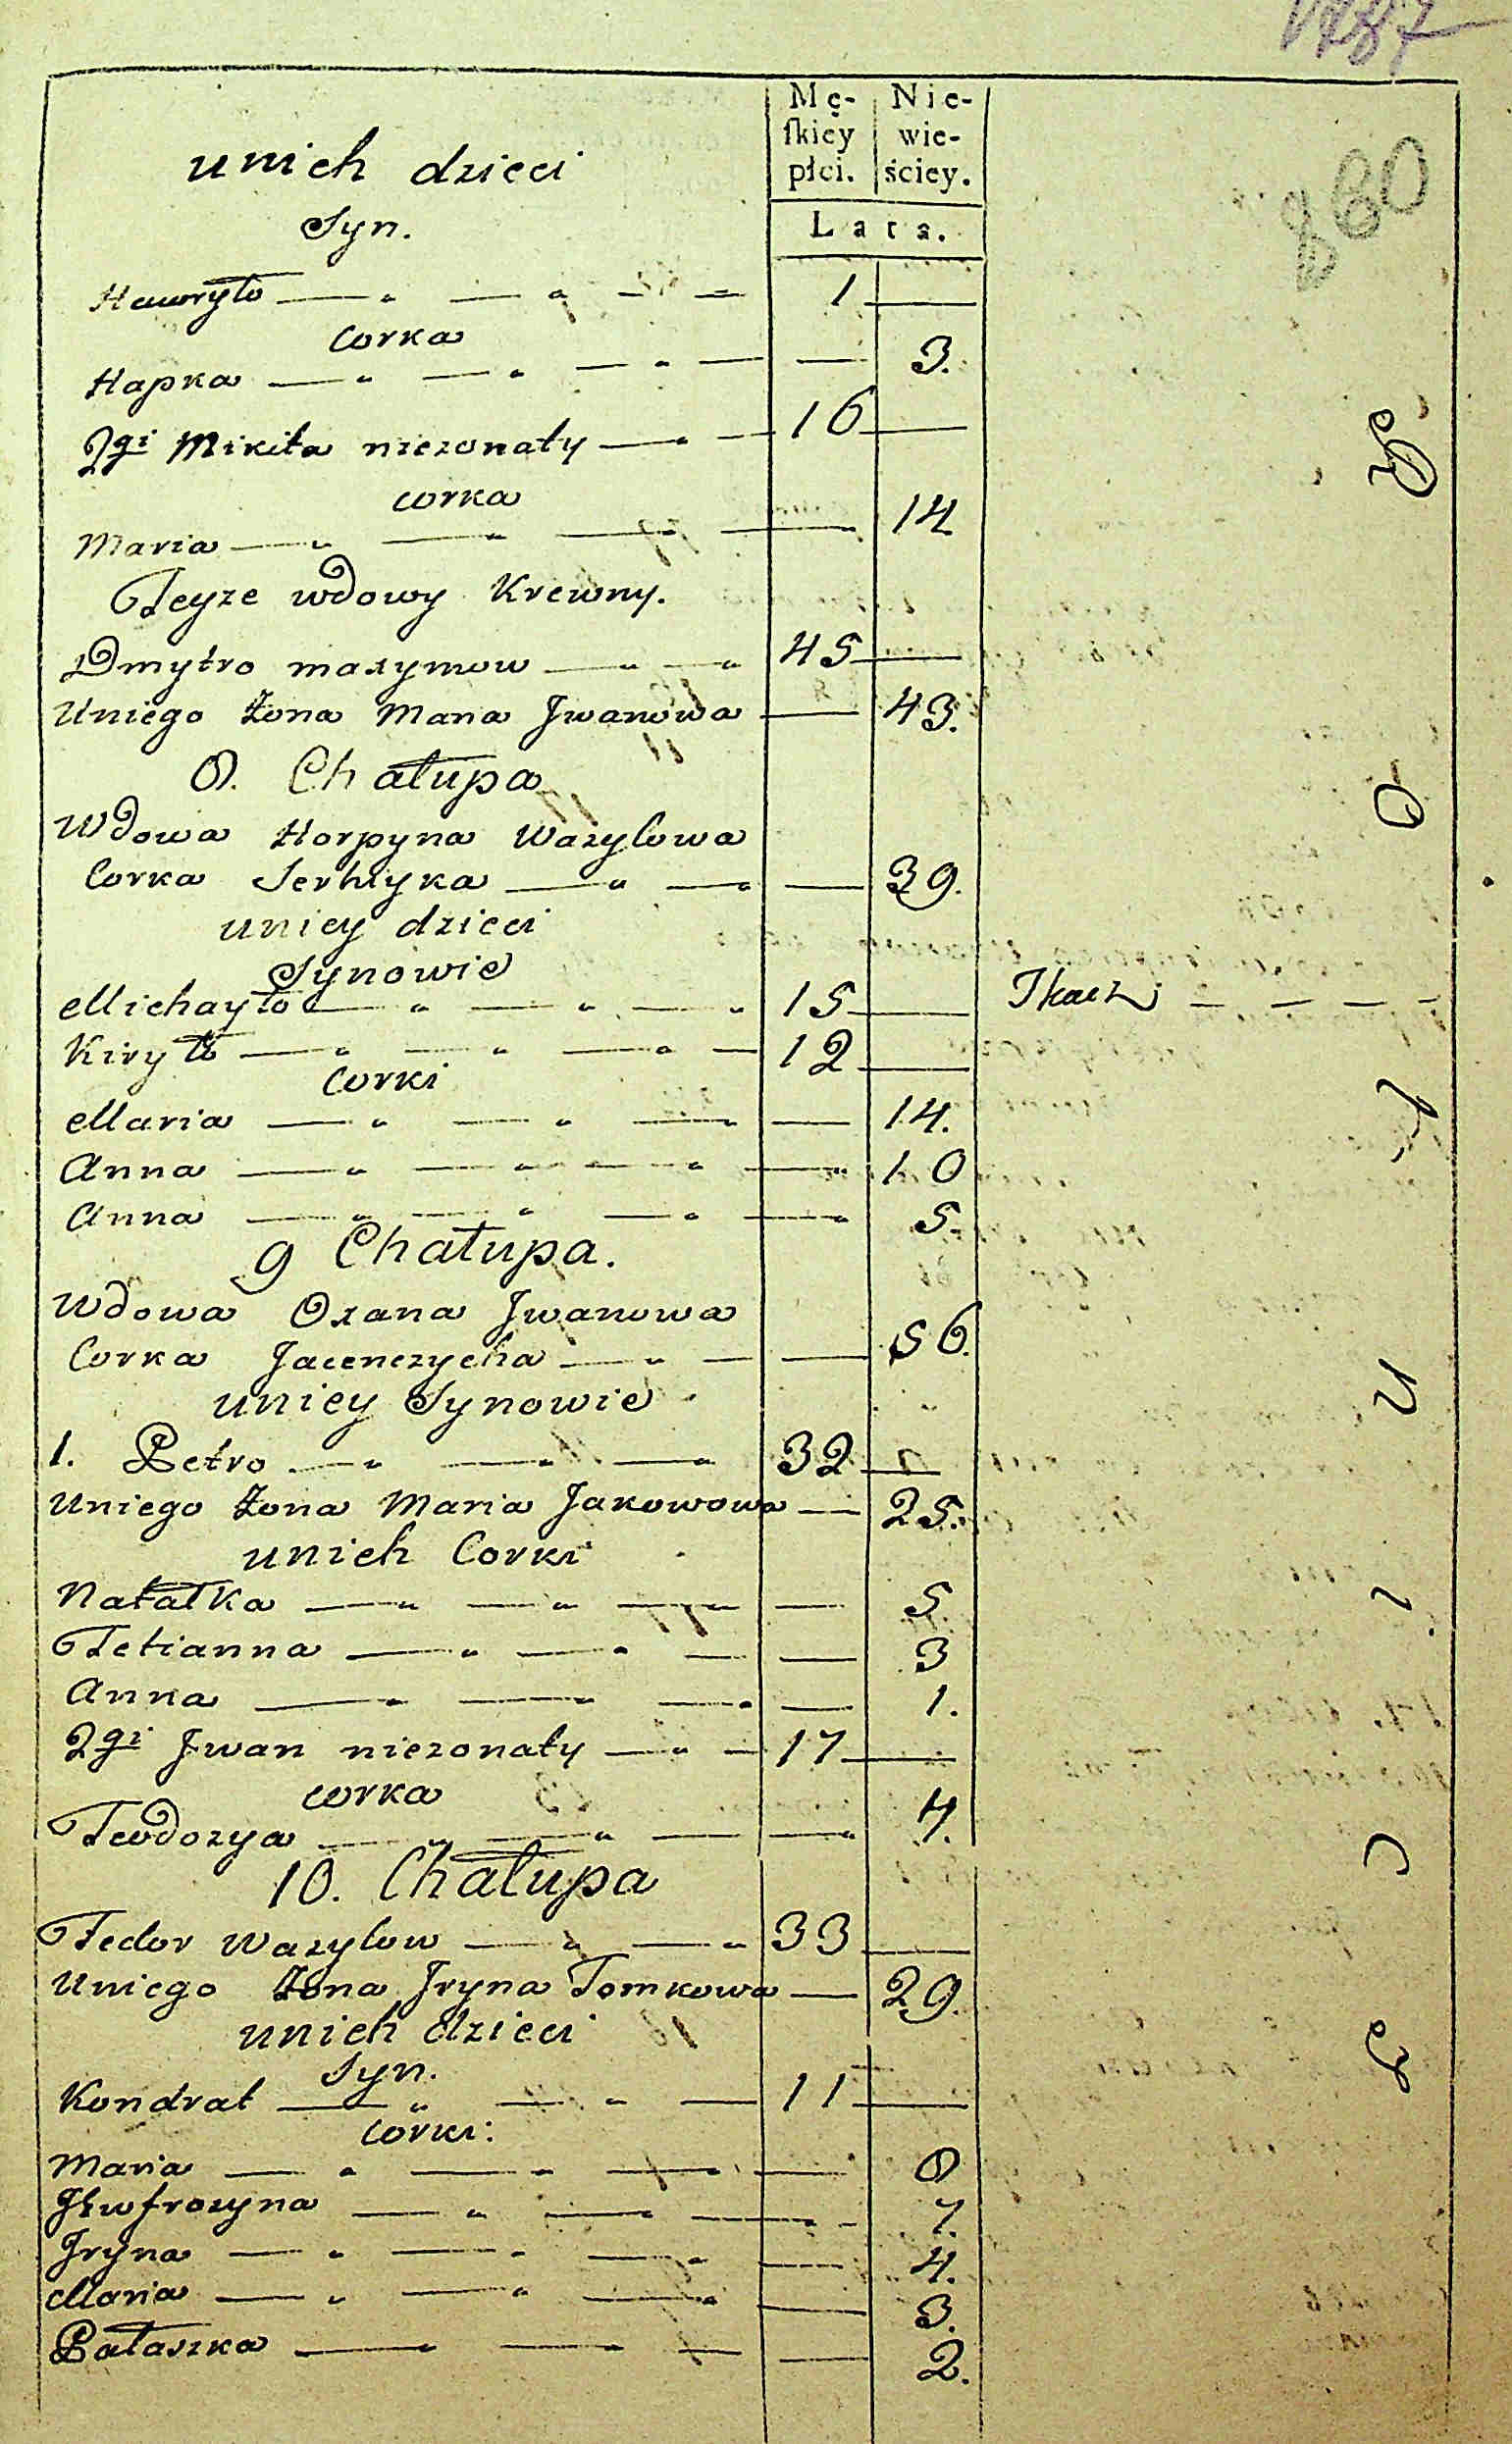 Mę- Nie-
ſkiey wie-
płci. ściey.
Lata.
860
unich dzieci
Syn.
Hawryło 1
Corka
Hapka 3.
2gi Mikita niezonaty 16
corka
Maria 14
Teyze wdowy Krewny.
Dmytro maxymow 45
Uniego Żona Maria Jwanowa 43.
8. Chałupa
Wdowa Horpyna Wazylowa
Corka Serhiyka 39.
uniey dzieci
Synowie
Michayło 15 Tkacz
Kiryło 12
Corki
Maria 14.
Anna 10
Anna 5.
9 Chałupa.
Wdowa Oxana Jwanowa
Corka Jacenczycha 56.
uniey Synowie
1. Petro 32
Uniego Żona Maria Jakowowa 25.
unich Corki
Natałka 5.
Tetianna 3
Anna 1.
2gi Jwan niezonaty 17
corka
Teodozya 4.
10. Chałupa
Fedor Wazylow 33
Uniego Żona Jryna Tomkowa 29.
unich dzieci
Syn.
Kondrat 11
Corki:
Maria 8
Jewfrozyna 7.
Jryna 4.
Maria 3.
Pałaszka 2.